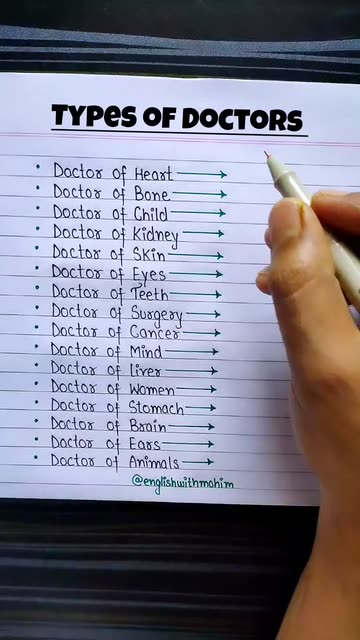 TYPES OF DOCTORS
• Doctor of Heart →
• Doctor of Bone →
• Doctor of Child →
• Doctor of Kidney →
• Doctor of Skin →
• Doctor of Eyes →
• Doctor of Teeth →
• Doctor of Surgery →
• Doctor of Cancer →
• Doctor of Mind →
• Doctor of Liver →
• Doctor of Women →
• Doctor of Stomach →
• Doctor of Brain →
• Doctor of Ears →
• Doctor of Animals →
@englishwithmohim